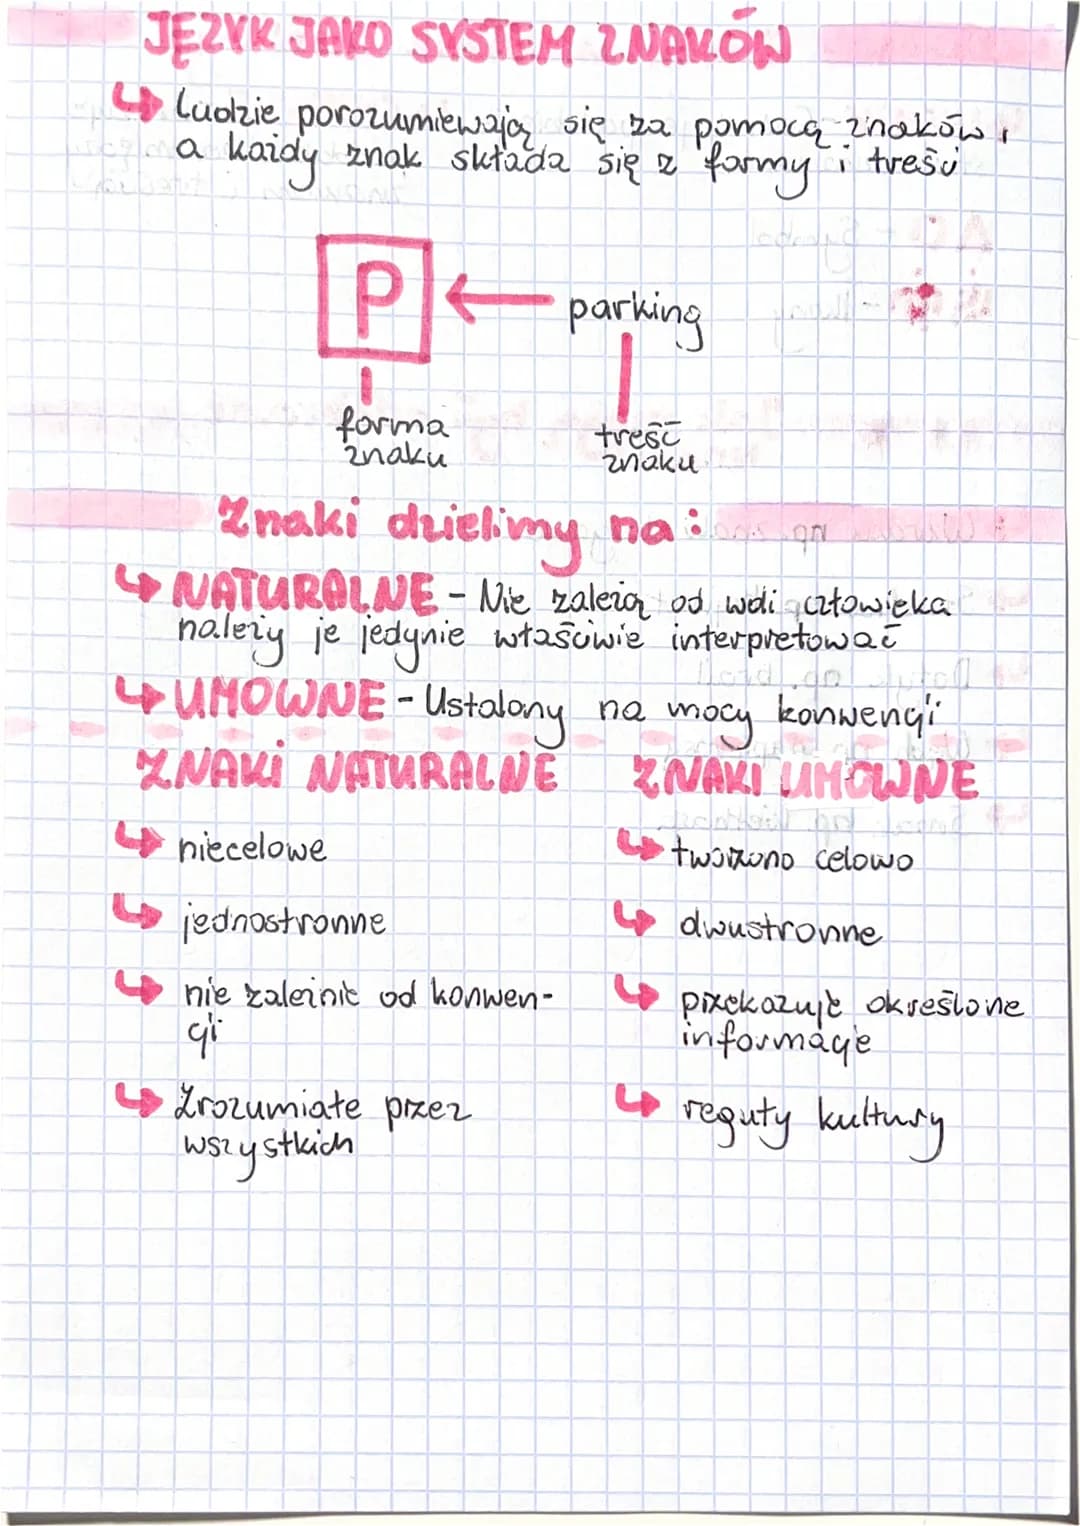 JĘZYK JAKO SYSTEM ZNAKÓW
Ludzie porozumiewają się za pomocą znaków,
a każdy znak składa się z formy i treści
P
parking
forma
znaku
treść
znaku
Znaki dzielimy na:
NATURALNE - Nie zależą od woli człowieka
należy je jedynie właściwie interpretować
UMOWNE - Ustalony na mocy konwencji
ZNAKI NATURALNE
niecelowe
jednostronne
nie zależnie od konwen-
cji
Zrozumiałe przez
wszystkich
ZNAKI UMOWNE
tworzono celowo
dwustronne
przekazuje określone
informacje
reguły kultury